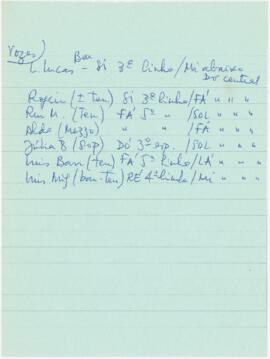 Vozes)
Bar
L. Lucas - Si 3ª linha / Mi abaixo
Do central
Rogério (± ten) Si 3ª linha / FÁ " " "
Rui M. (Ten) FÁ 5ª " / SOL " " "
Alda (Mezzo) " " " / FÁ " " "
Júlia B (Sop) DÓ 3º esp. / SOL " " "
Luis Barr (ten) FÁ 5ª linha / LÁ " "
Luis Mig (bar-ten) RÉ 4ª linha / Mi " " "